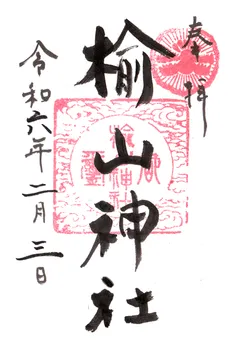 奉拝
楡山神社
令和六年二月三日